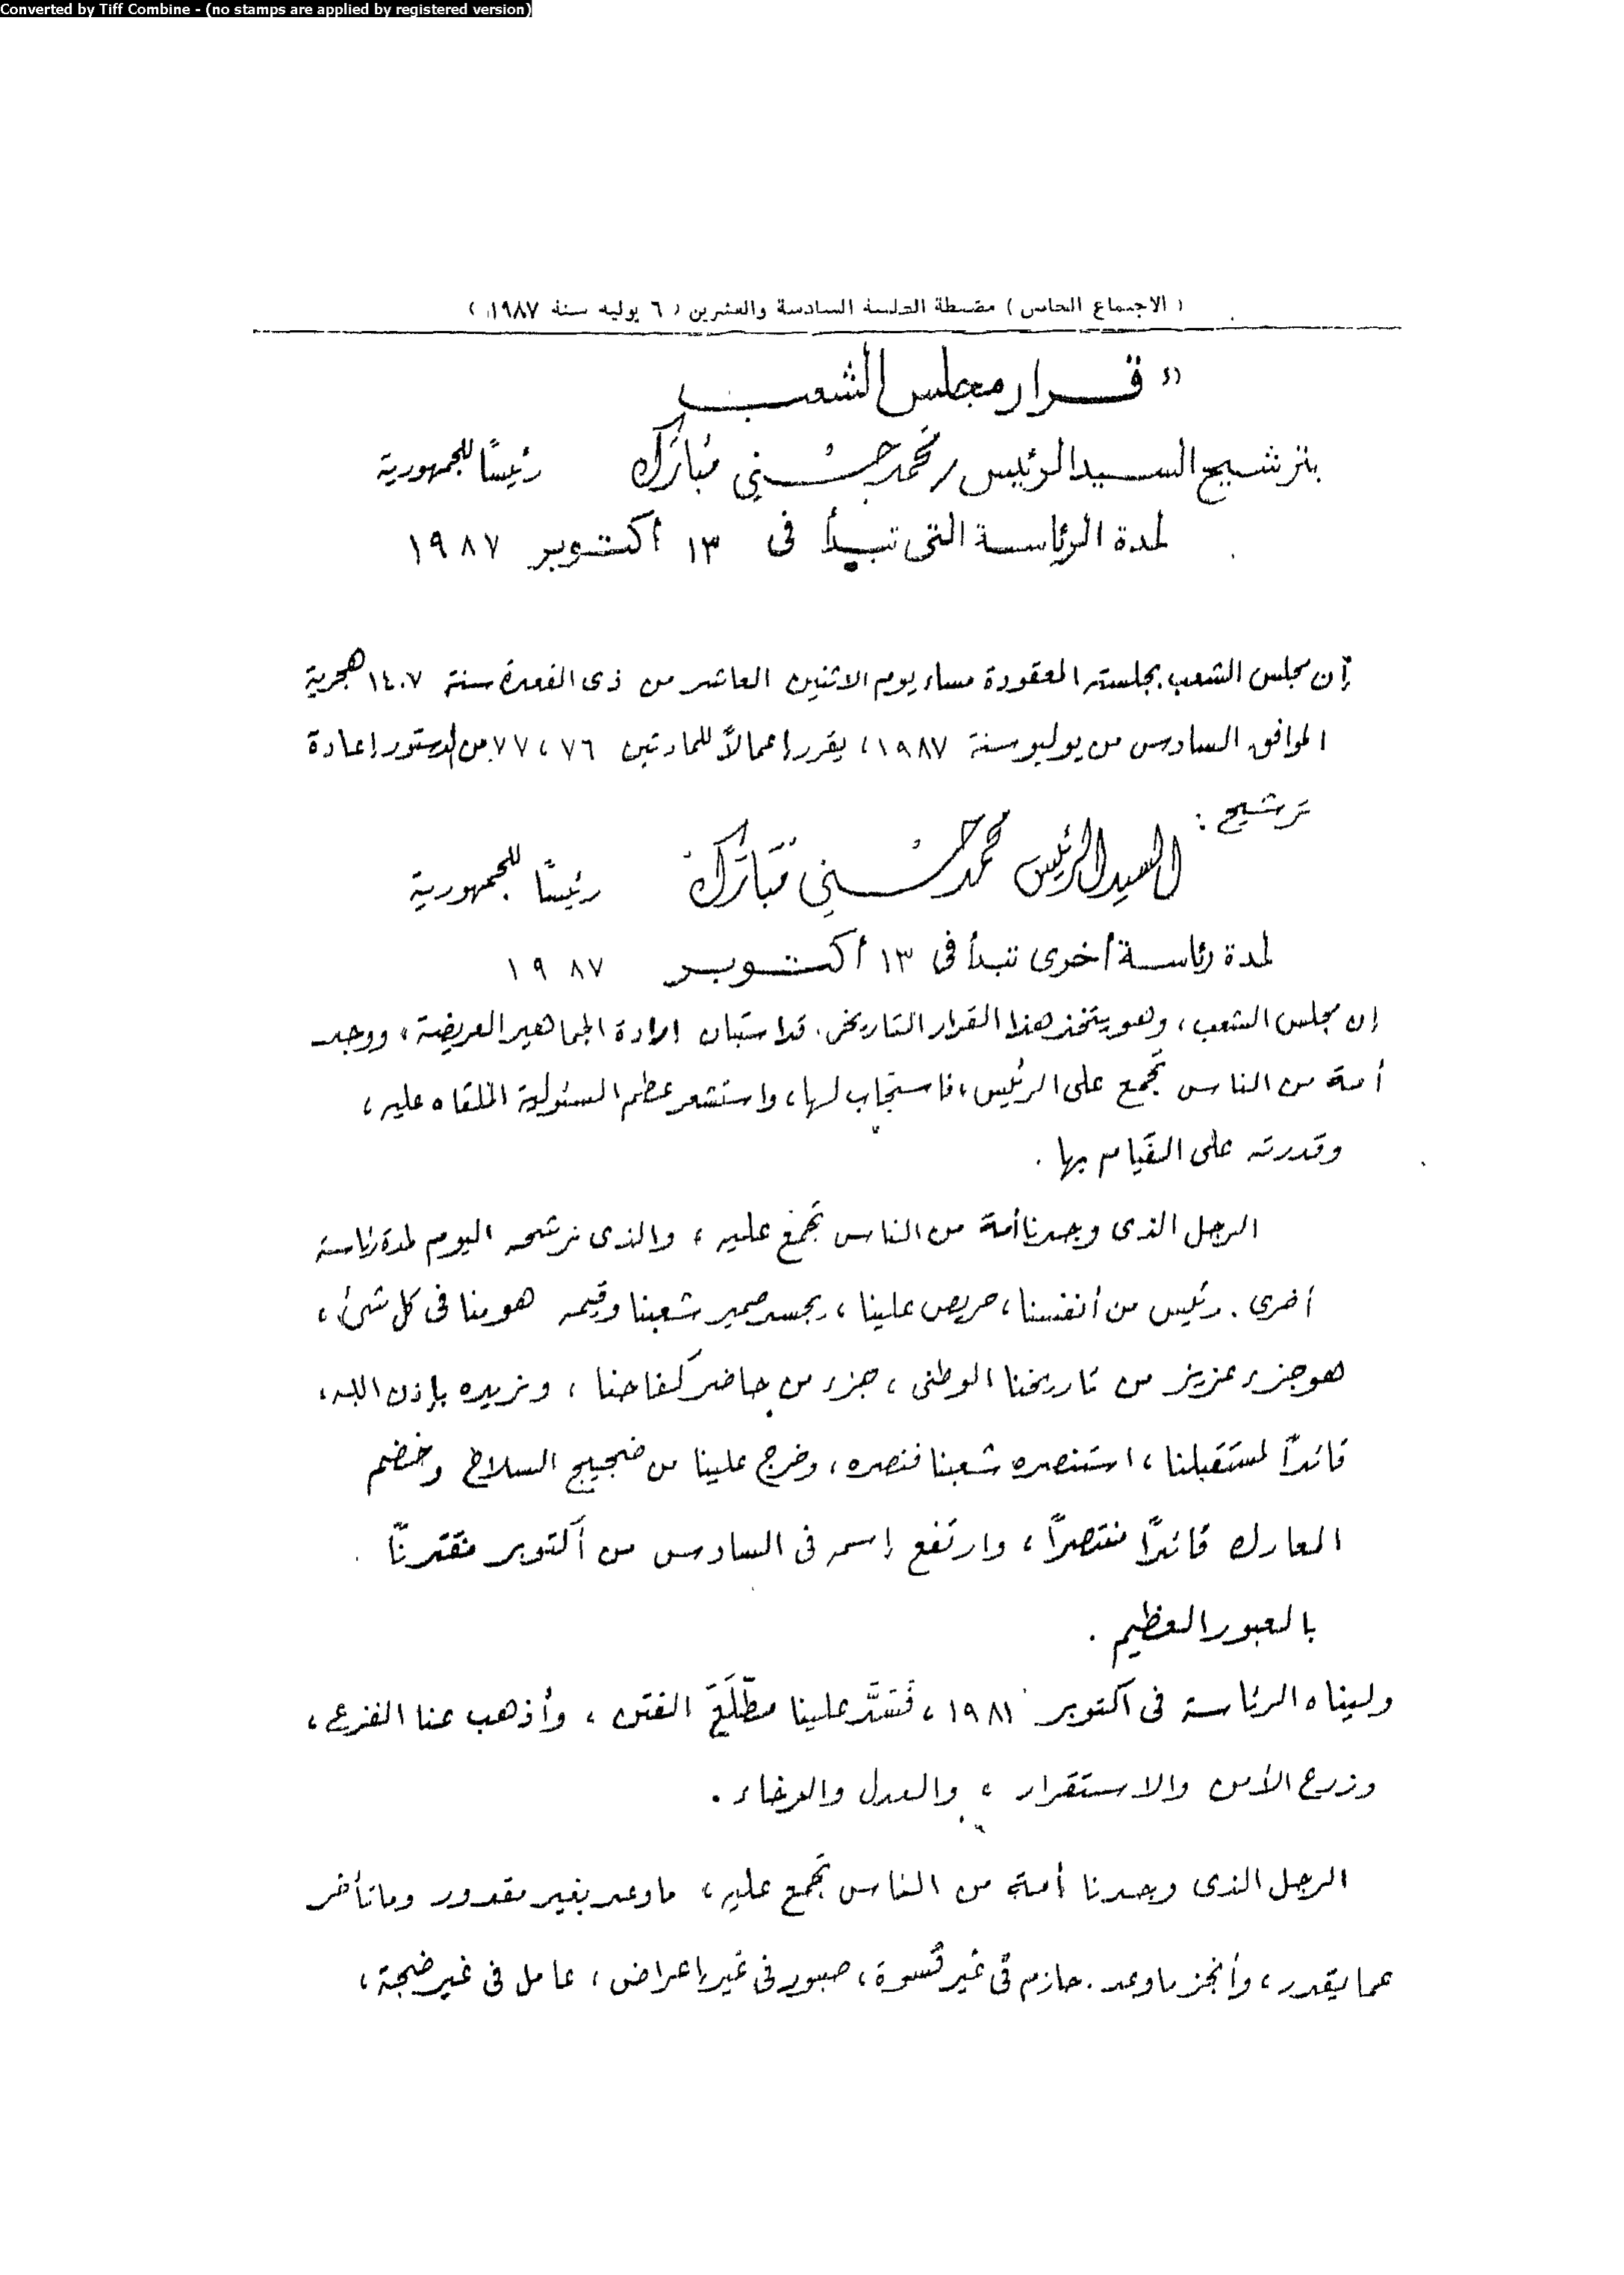 Converted by Tiff Combine - (no stamps are applied by registered version)
( الاجتماع الخامس ) مضبطة الجلسة السادسة والعشرين ( ٦ يوليه سنة ١٩٨٧ )
" قرار مجلس الشعب
بترشيح السيد الرئيس / محمد حسني مبارك رئيسًا للجمهورية
لمدة الرئاسة التى تبدأ فى ١٣ أكتوبر ١٩٨٧
إن مجلس الشعب بجلسته المعقودة مساء يوم الاثنين العاشر من ذى القعدة سنة ١٤٠٧ هجرية
الموافق السادس من يوليو سنة ١٩٨٧ ، يقرر إعمالاً للمادتين ٧٦ ، ٧٧ من الدستور إعادة
ترشيح :
السيد الرئيس محمد حسني مبارك رئيسًا للجمهورية
لمدة رئاسة أخرى تبدأ فى ١٣ أكتوبر ١٩٨٧
إن مجلس الشعب ، وهو يتخذ هذا القرار التاريخى . قد استبان إرادة الجماهير العريضة ، ووجد
أمة من الناس تجمع على الرئيس ، فاستجاب لها ، واستشعر عظم المسئولية الملقاه عليه ،
وقدرته على القيام بها .
الرجل الذى وجدنا أمة من الناس تجمع عليه ، والذى نرشحه اليوم لمدة رئاسة
أخرى . رئيس من أنفسنا ، حريص علينا ، يجسد ضمير شعبنا وقيمه هو منا فى كل شئ ،
هو جزء عزيز من تاريخنا الوطنى ، جزء من حاضر كفاحنا ، ونريده بإذن الله ،
قائدًا لمستقبلنا ، استنصره شعبنا فنصره ، وخرج علينا من ضجيج السلاح وخضم
المعارك قائدًا منتصرًا ، وارتفع إسمه فى السادس من أكتوبر مقترنًا
بالعبور العظيم .
وليناه الرئاسة فى أكتوبر ١٩٨١ ، فَسَدَّ علينا مطّلَعَ الفتن ، وأذهب عنا الفزع ،
وزرع الأمن والاستقرار ، والعدل والرخاء .
الرجل الذى وجدنا أمة من الناس تجمع عليه ، ما وعد بغير مقدور وما تأخر
عما يقدر ، وأنجز ما وعد . حازم فى غير قسوة ، صبور فى غير إعراض ، عامل فى غير ضجة ،